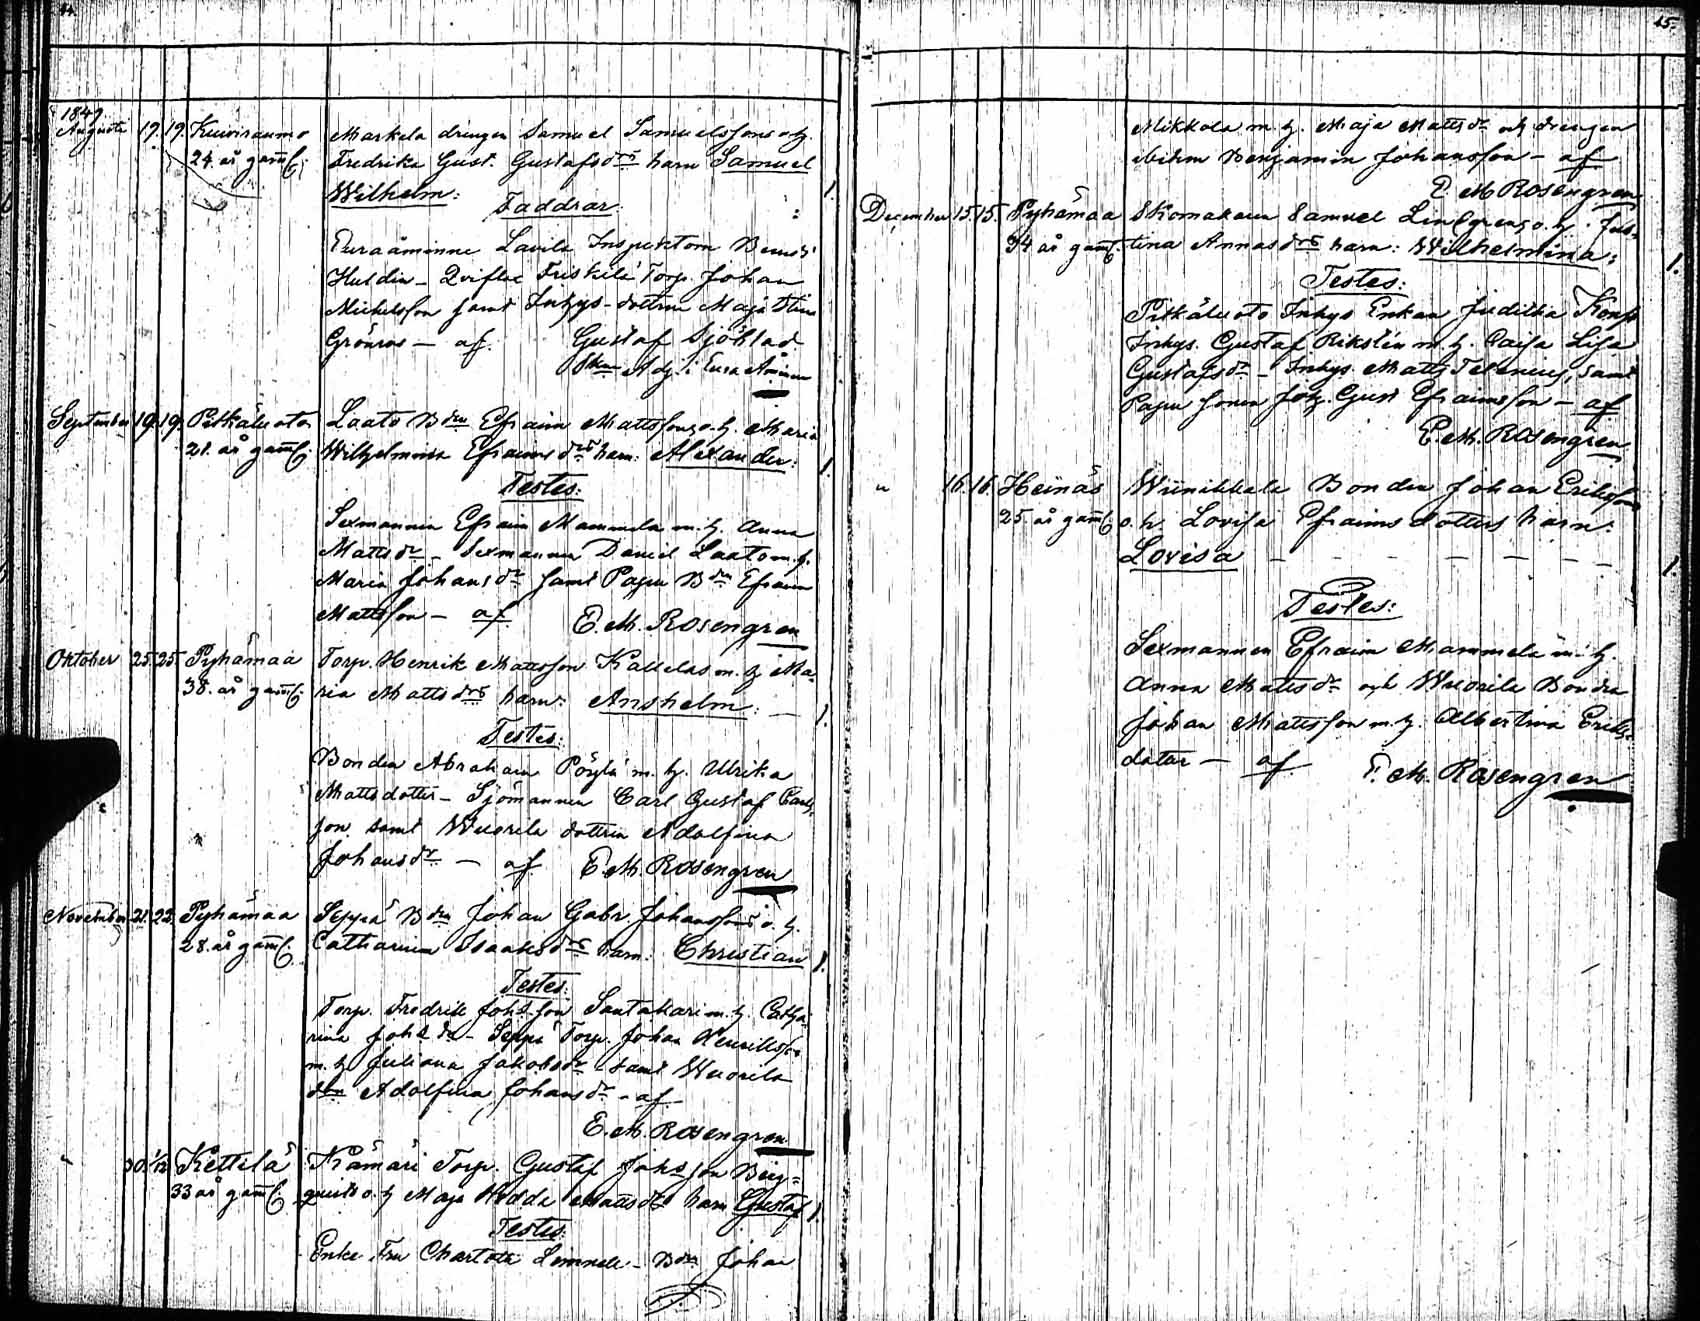 44.
1849
Augusti 19. 19. Kuiviraumo Markela drengen Samuel Samuelssons o. h.
24. år gaml. Fredrika Gust. Gustafsdrs barn Samuel
Wilhelm: 1.
Faddrar:
Euraåminne Lavila Inspektorn
Huldin - Friskilä Torp. Johan
Michelsson samt Inhys-dottren Maja Stina
Grönroos - af. Gustaf Sjöblad
Adj. i Eura Åminne
September 19. 19. Pitkäluoto Laato Bdn Efraim Mattssons o. h. Maria
21. år gaml. Wilhelmina Efraimsdrs barn: Alexander: 1.
Testes:
Sexmannen Efraim Mammela m. h. Anna
Mattsdr - Sexmannen Daniel Laato m. h.
Maria Johansdr samt Papu Bdn Efraim
Mattsson - af E. M. Rosengren
Oktober 25. 25. Pyhämaa Torp. Henrik Mattsson Kallelas m. h. Ma-
38. år gaml. ria Mattsdrs barn: Anshelm: - 1.
Testes:
Bonden Abraham Pöylä m. h. Ulrika
Mattsdotter - Sjömannen Carl Gustaf Carls-
son samt Wuorela dottren Adolfina
Johansdr - af E. M. Rosengren
November 21. 22. Pyhämaa Seppä Bdn Johan Gabr. Johanssons o. h.
28. år gaml. Catharina Isaaksdrs barn: Christian 1.
Testes:
Torp. Fredrik Johsson Santakari m. h. Catha-
rina Johsdr - Seppä Torp. Johan Henriksson
m. h. Juliana Jakobsdr samt Wuorela
dtn Adolfina Johansdr - af
E. M. Rosengren
" 30. 1/12 Kettelä Kämäri Torp. Gustaf Johsson Berg-
33 år gaml. quists o. h. Maja Hedda Mattsdrs barn Gustaf 1.
Testes:
Enke Fru Charlotta - Bdn Johan
45.
Mikkola m. h. Maja Mattsdr och drengen
ibidm Benjamin Johansson - af
E. M. Rosengren
December 15. 15. Pyhämaa Skomakaren Samuel Lindgrens o. h. Jus-
34 år gaml. tina Annasdrs barn: Wilhelmina: 1.
Testes:
Pitkäluoto Inhys Enkan Juditha
Inhys. Gustaf Rikstén m. h. Caisa Lisa
Gustafsdr - Inhys. Matts Telenius, samt
Papu sonen Joh. Gust Efraimsson - af
E. M. Rosengren
" 16. 16. Heinäs Wiinikkala Bonden Johan Erikssons
25. år gaml. o. h. Lovisa Efraimsdotters barn:
Lovisa - - - - - - - 1.
Testes:
Sexmannen Efraim Mammela m. h.
Anna Mattsdr och Wuorila Bonden
Johan Mattsson m. h. Albertina Eriks-
dotter - af E. M. Rosengren